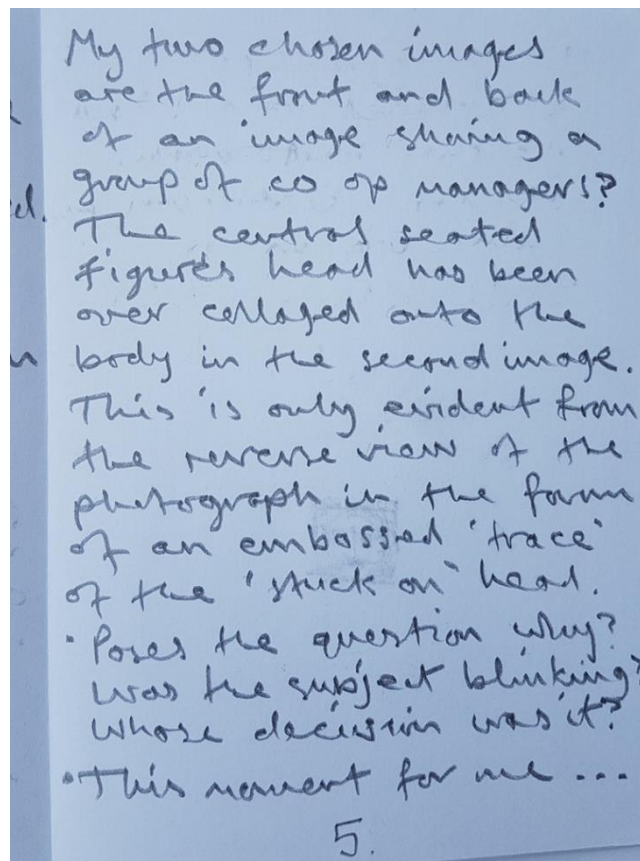 My two chosen images
are the front and back
of an image sharing a
group of co op managers?
The central seated
figure's head has been
over collaged onto the
body in the second image.
This is only evident from
the reverse view of the
photograph in the form
of an embossed 'trace'
of the 'stuck on' head.
• Poses the question why?
Was the subject blinking?
Whose decision was it?
• This moment for me ...
5.